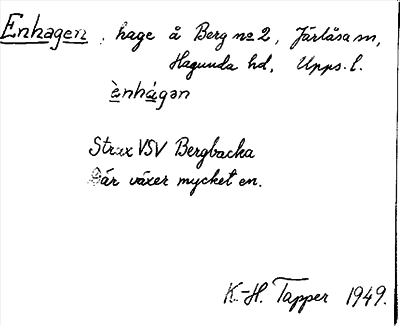 Enhagen, hage å Berg no 2, Järlåsa sn,
Hagunda hd, Upps. l.
ènhágən
Strax VSV Bergbacka
Där växer mycket en.
K.-H. Tapper 1949.